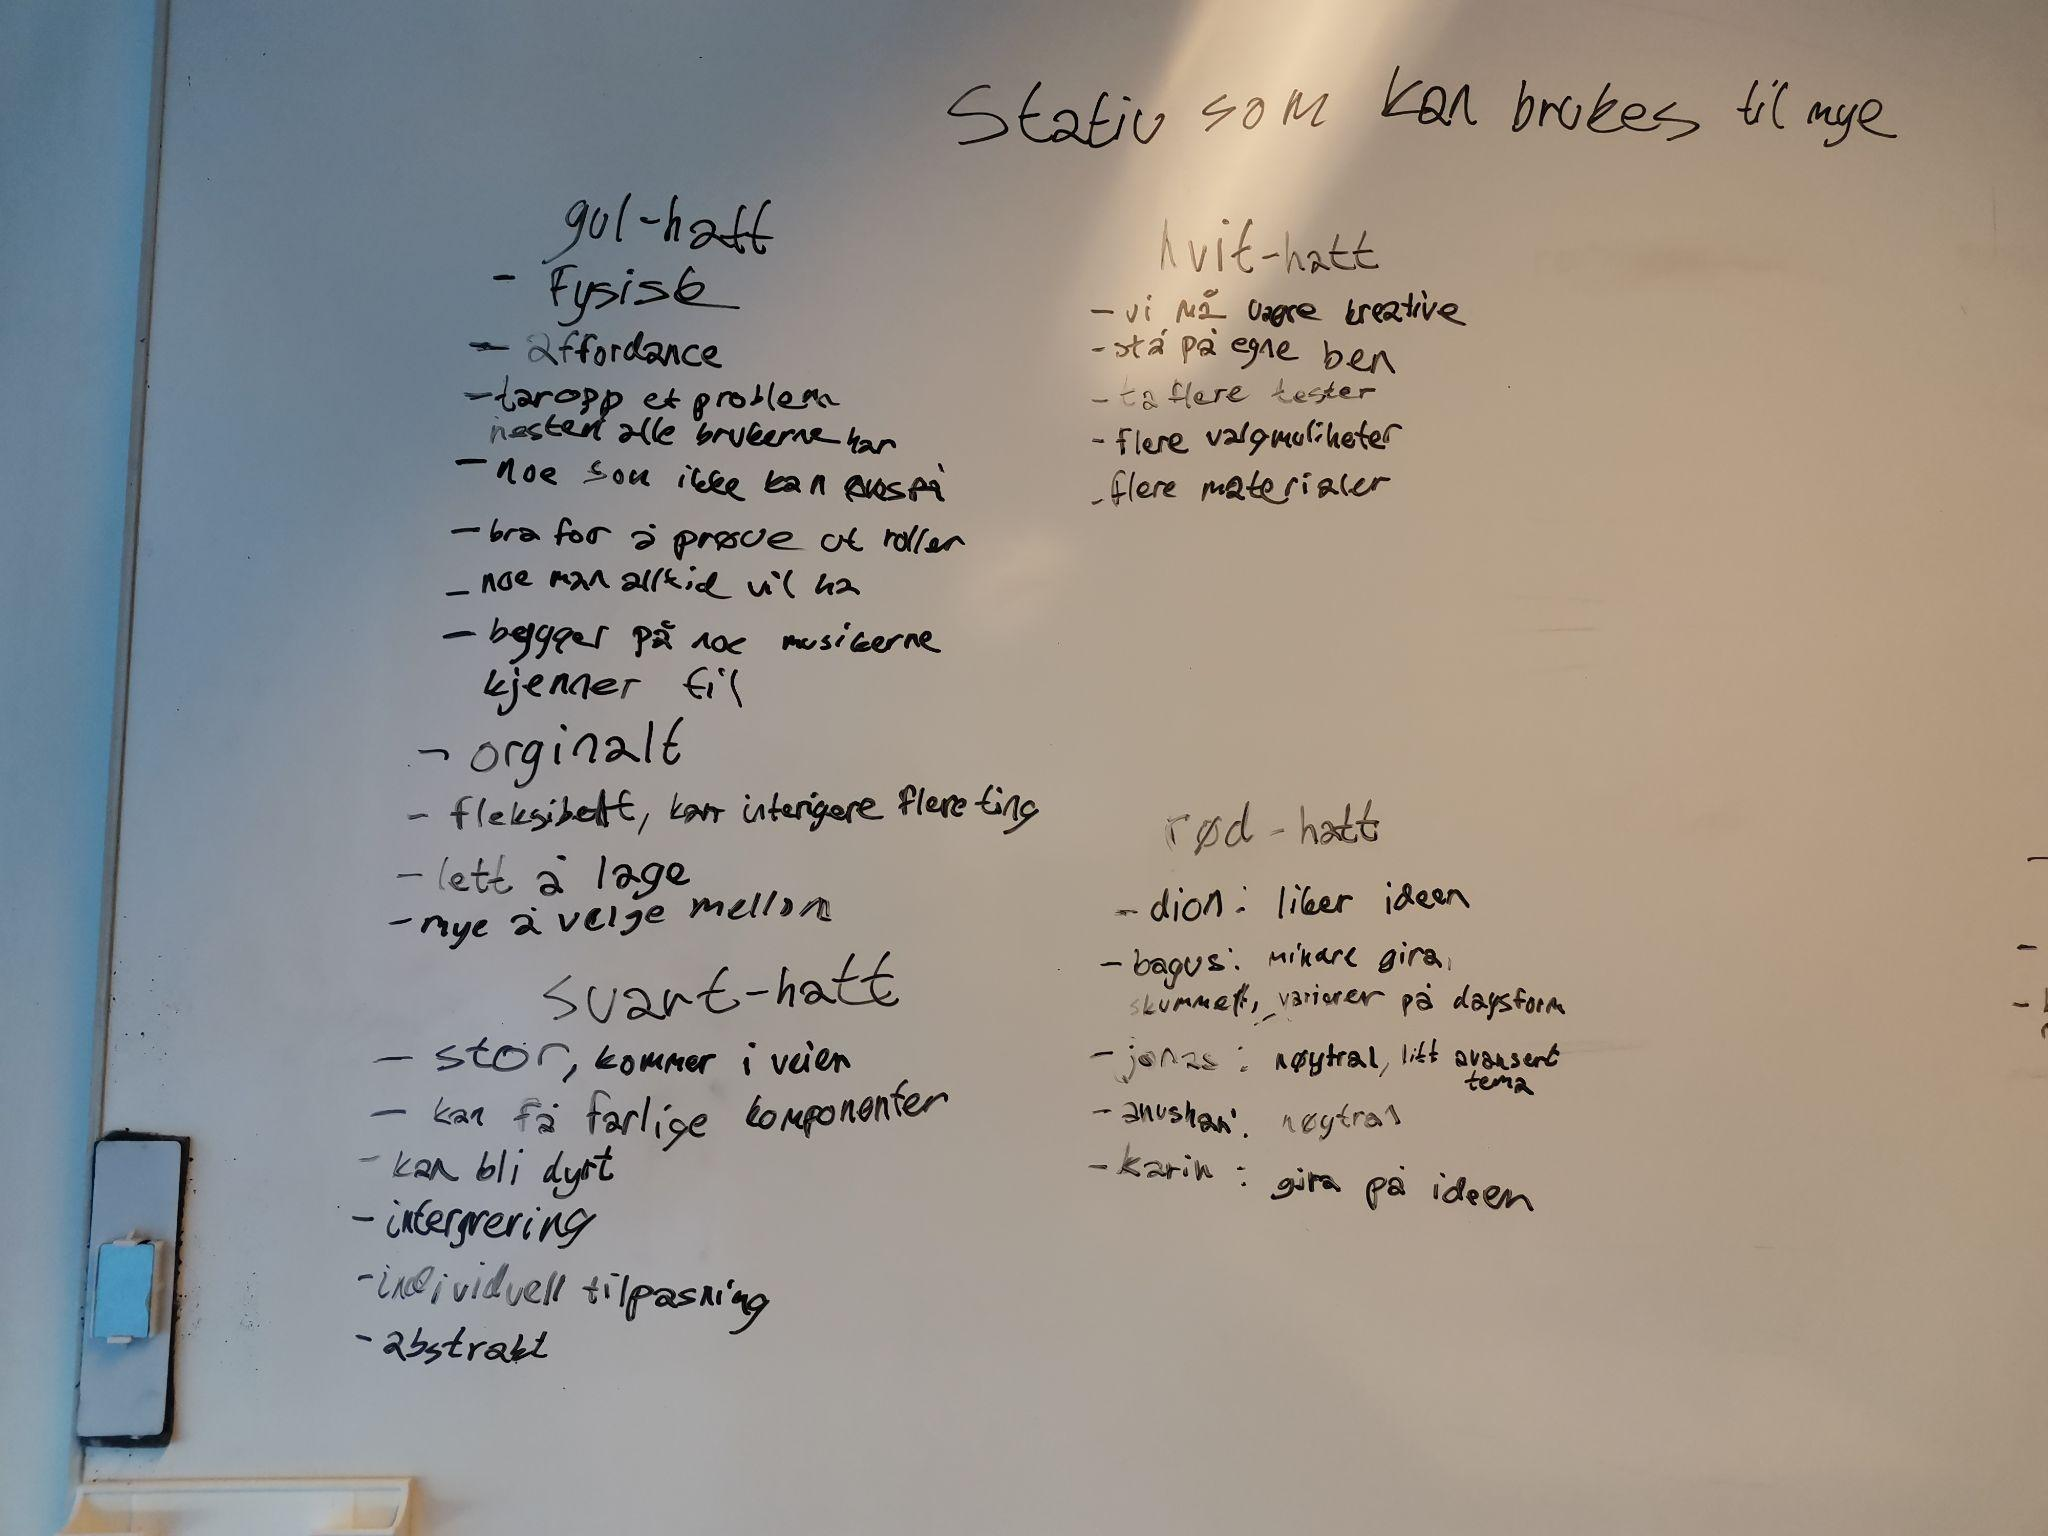 Stativ som kan brukes til mye
gul-hatt
- Fysisk
- affordance
- tar opp et problem
nesten alle brukerne har
- noe som ikke kan
- bra for å prøve ut roller
- noe man alltid vil ha
- beygger på noe musikerne
kjenner til
- orginalt
- fleksibelt, kan interigere flere ting
- lett å lage
- mye å velge mellom
svart-hatt
- stor, kommer i veien
- kan få farlige komponenter
- kan bli dyrt
- intergrering
- individuell tilpasning
- abstrakt
hvit-hatt
- vi må være kreative
- stå på egne ben
- ta flere tester
- flere valgmuliheter
- flere materialer
rød-hatt
- dion: liker ideen
- bagus: mindre gira,
skummelt, varierer på dagsform
- jonas: nøytral, litt avansert
tema
- anushan: nøytral
- karin: gira på ideen